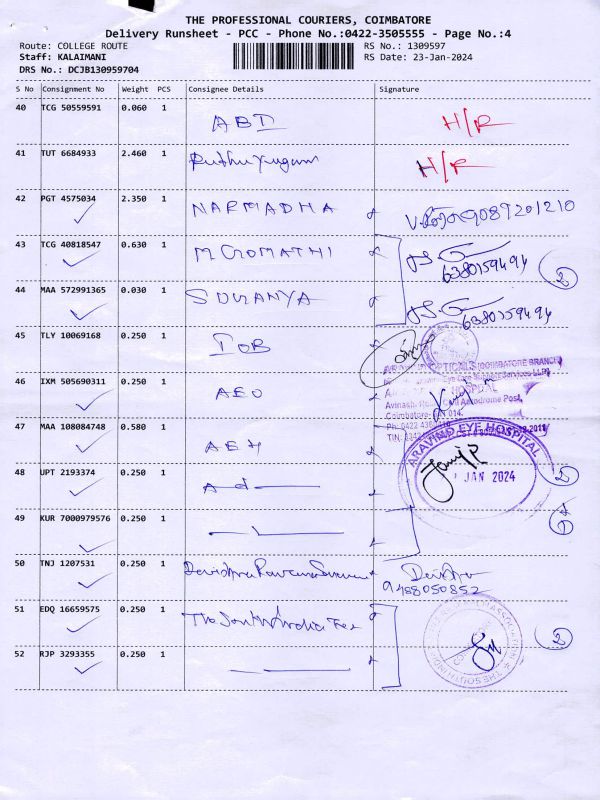 THE PROFESSIONAL COURIERS, COIMBATORE
Delivery Runsheet - PCC - Phone No.:0422-3505555 - Page No.:4
Route: COLLEGE ROUTE RS No.: 1309597
Staff: KALAIMANI RS Date: 23-Jan-2024
DRS No.: DCJB130959704
S No Consignment No Weight PCS Consignee Details Signature
40 TCG 50559591 0.060 1 ABD H/R
41 TUT 6684933 2.460 1 H/R
42 PGT 4575034 2.350 1 NARMADHA 9089201210
43 TCG 40818547 0.630 1 M GOMATHI 6380159494
2
44 MAA 572991365 0.030 1 SOURANYA 6380159494
45 TLY 10069168 0.250 1 IOB
46 IXM 505690311 0.250 1 AEO
OPTICALS (COIMBATORE BRANCH)
HOSPITAL
47 MAA 108084748 0.580 1 AEH
ARAVIND EYE HOSPITAL
48 UPT 2193374 0.250 1
JAN 2024
49 KUR 7000979576 0.250 1
50 TNJ 1207531 0.250 1
9488050852
51 EDQ 16659575 0.250 1 The South India
2
52 RJP 3293355 0.250 1
THE SOUTH INDIA